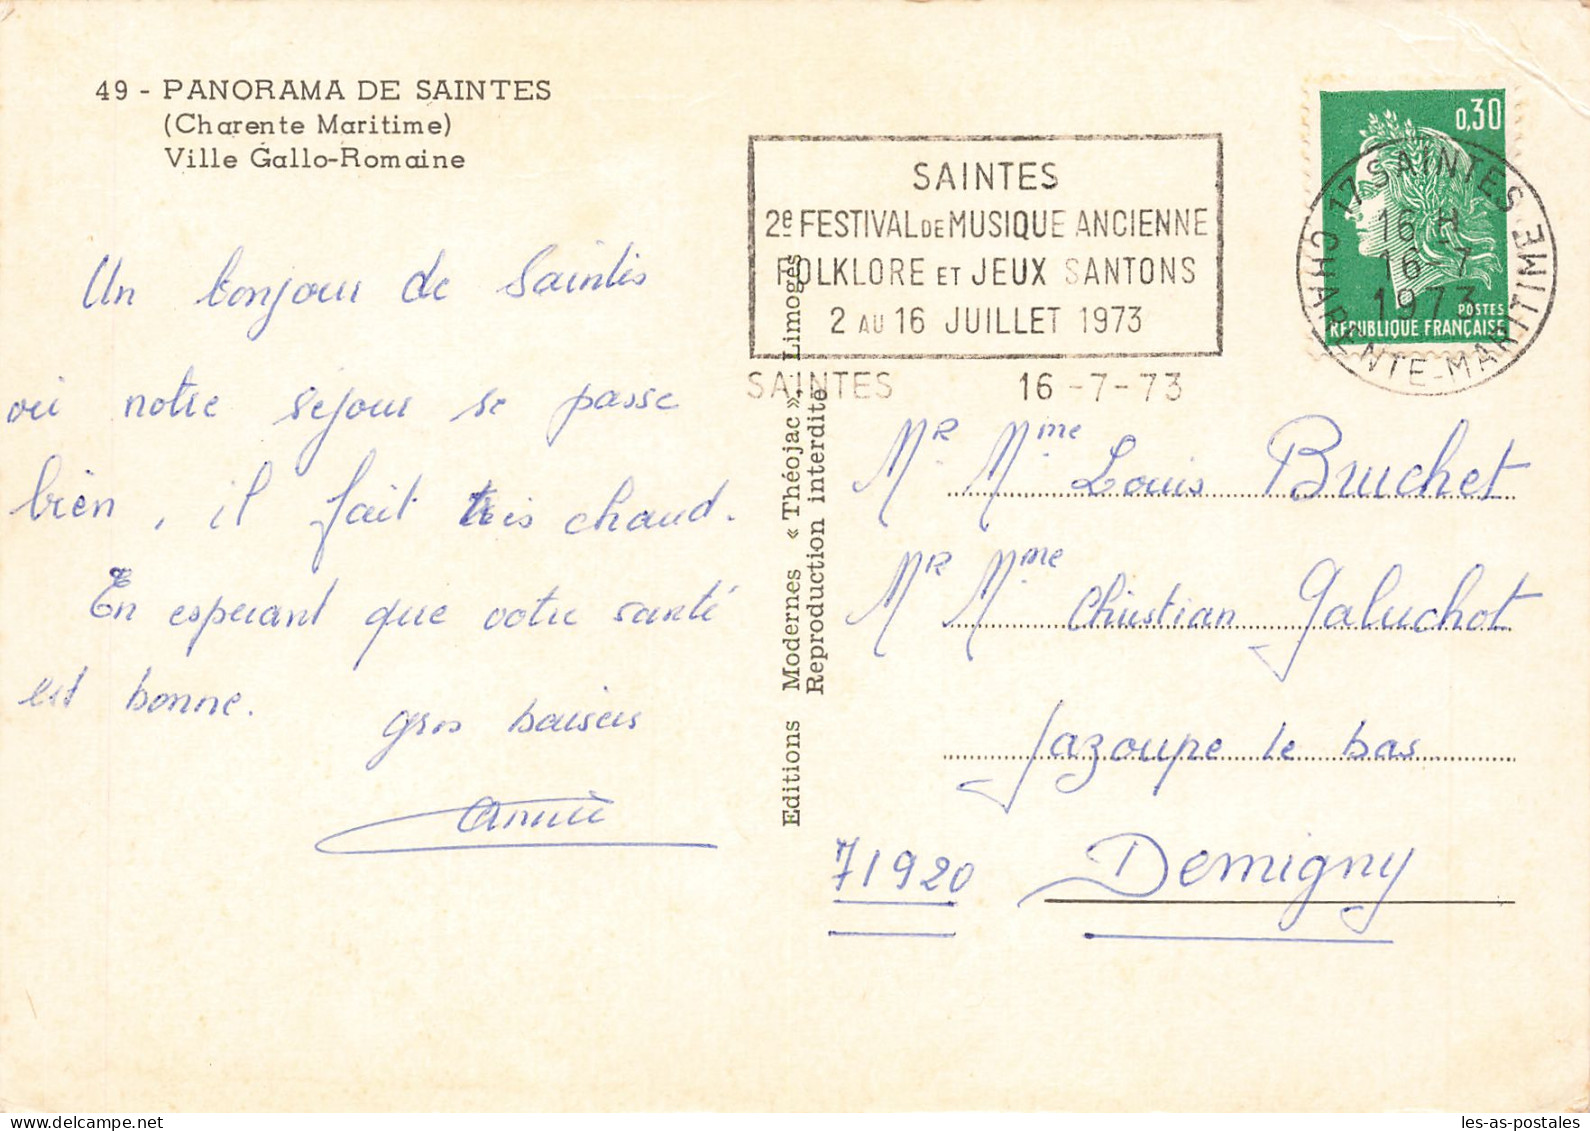 49 - PANORAMA DE SAINTES
(Charente Maritime)
Ville Gallo-Romaine
Un bonjour de Saintes
où notre séjour se passe
bien, il fait très chaud.
En esperant que votre santé
est bonne.
gros baisers
Annie
Editions Modernes « Théojac », Limoges
Reproduction interdite
SAINTES
2e FESTIVAL DE MUSIQUE ANCIENNE
FOLKLORE ET JEUX SANTONS
2 AU 16 JUILLET 1973
SAINTES 16-7-73
0,30
POSTES
REPUBLIQUE FRANÇAISE
17 SAINTES
16 H
16-7
1973
CHARENTE-MARITIME
Mr Mme Louis Bruchet
Mr Mme Christian Galuchot
Jazoupe le bas
71920 Demigny
les-as-postales